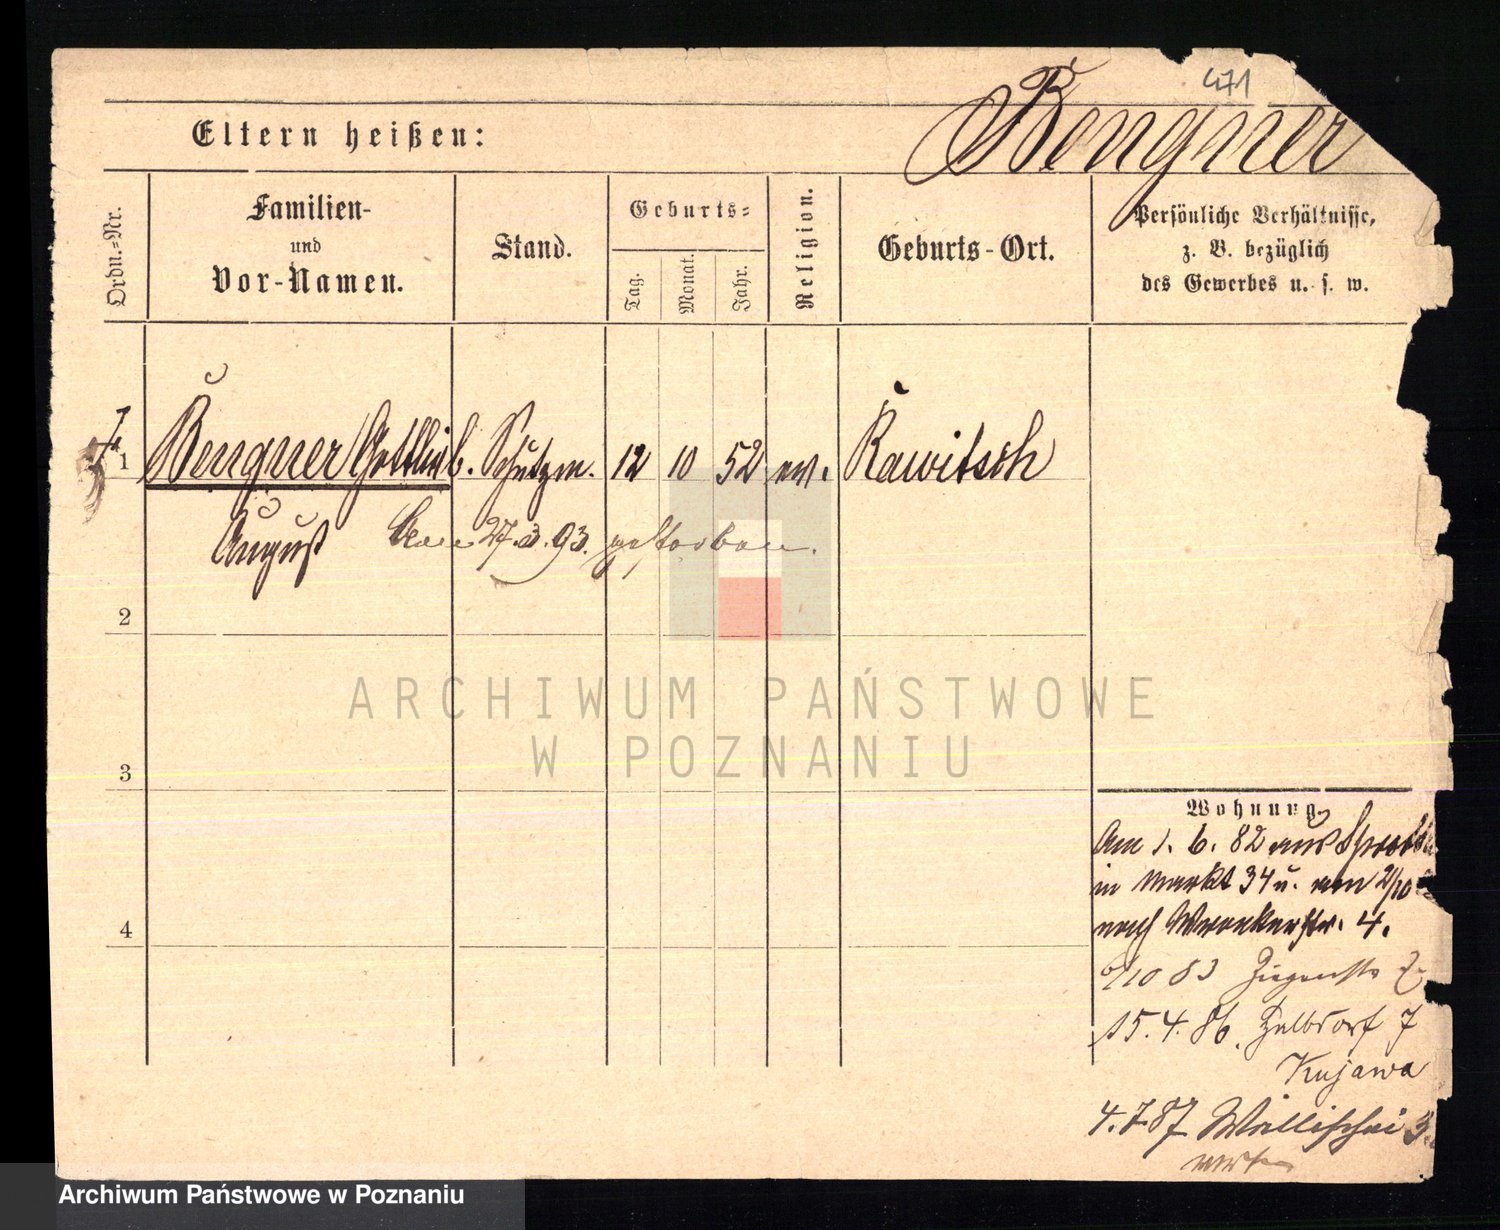 471
Bengner
Eltern heißen:
Ordn.-Nr.
Familien-
und
Vor-Namen.
Stand.
Geburts-
Tag.
Monat.
Jahr.
Religion.
Geburts-Ort.
Persönliche Verhältnisse,
z. B. bezüglich
des Gewerbes u. s. w.
1 Bengner Gottlieb. Schutzm. 12 10 52 ev. Rawitsch
August
27.3.93. gestorben.
2
3
4
Wohnung.
Am 1. 6. 82 aus
in Markt 34 u. am 2/10
nach Wronkerstr. 4.
/10 83 Ziegenstr
15. 4. 86.
Kujawa
4.7.87 Wallischei 3
ARCHIWUM PAŃSTWOWE
W POZNANIU
Archiwum Państwowe w Poznaniu